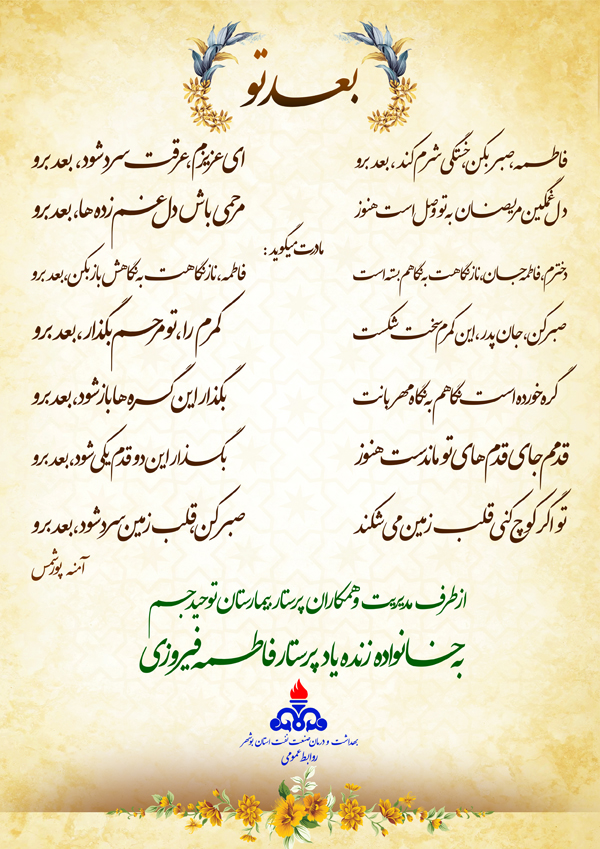 بعد تو
فاطمه، صبر بکن، خستگی شرم کند، بعد برو ای عزیزم، عرقت سرد شود، بعد برو
دل غمگین مریضان به تو وصل است هنوز مرحمی باش دل غم زده ها، بعد برو
مادرت میگوید:
دخترم، فاطمه جان، ناز نگاهت به نگاهم بسته است فاطمه، ناز نگاهت به نگاهش باز بکن، بعد برو
صبر کن، جان پدر، این کمرم سخت شکست کمرم را، تو مرحم بگذار، بعد برو
گره خورده است نگاهم به نگاه مهربانت بگذار این گره ها باز شود، بعد برو
قدمم جای قدم های تو ماندست هنوز بگذار این دو قدم یکی شود، بعد برو
تو اگر کوچ کنی قلب زمین می شکند صبر کن، قلب زمین سرد شود، بعد برو
آمنه پورشمس
از طرف مدیریت و همکاران پرستار بیمارستان توحید جم
به خانواده زنده یاد پرستار فاطمه فیروزی
بهداشت و درمان صنعت نفت استان بوشهر
روابط عمومی